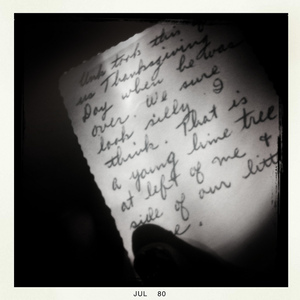 took this
us Thanksgiving
Day when he was
over. We sure
look silly I
think. That is
a young lime tree
at left of me &
side of our litt
e.
JUL 80